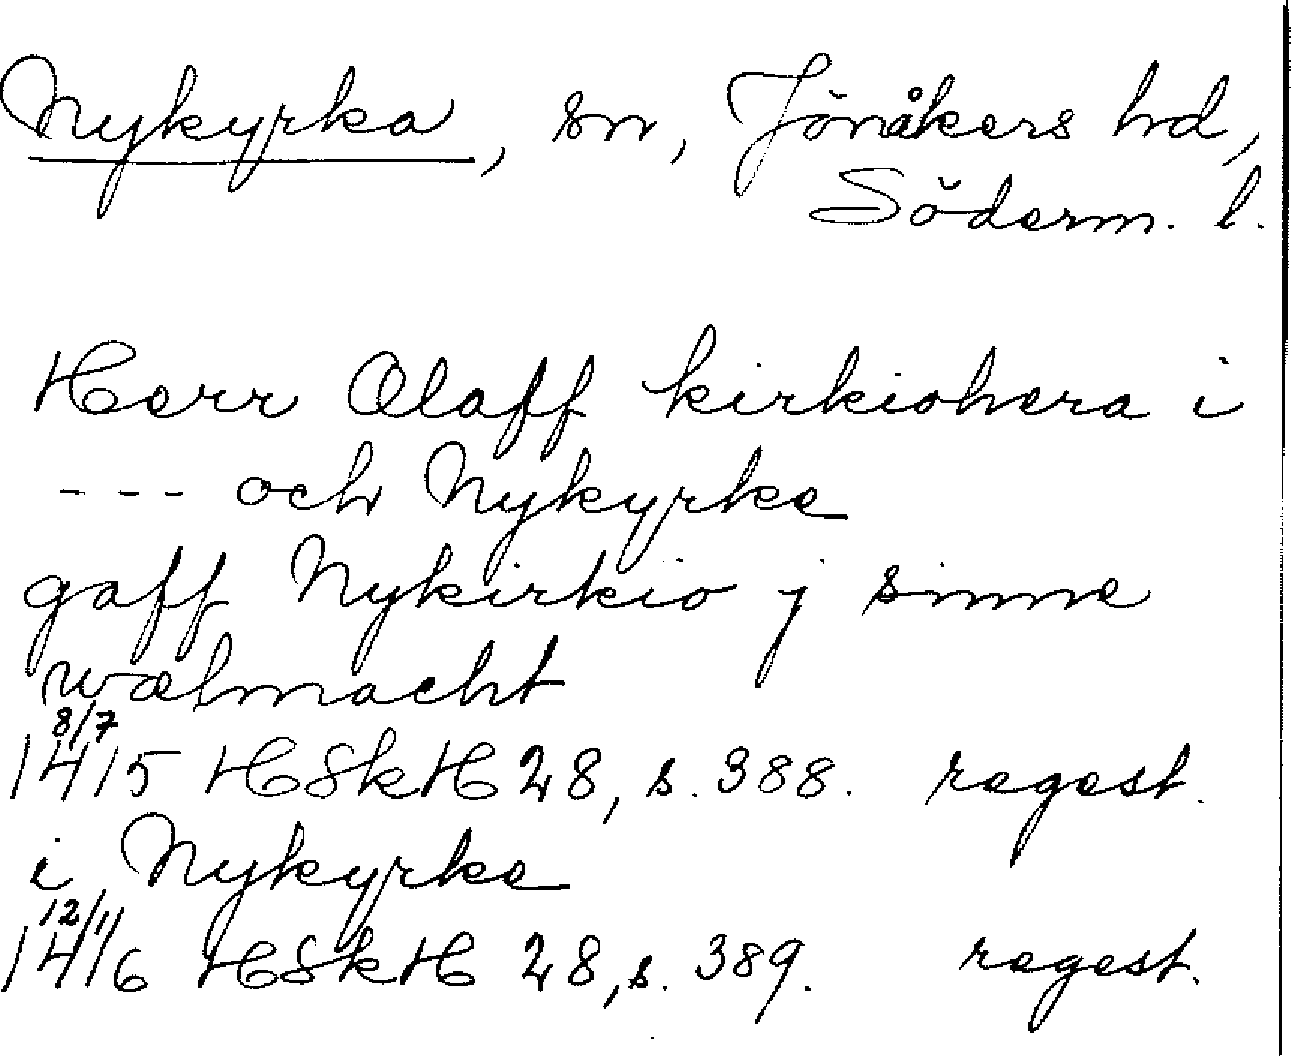 Nykyrka, sn, Jönåkers hd,
Söderm. l.
Herr Olaff kirkiohera i
--- och Nykyrke
gaff Nykirkio j sinne
wælmacht
8/7
1415 HSkH 28, s. 388. regest.
i Nykyrke
12/11
1416 HSkH 28, s. 389. regest.